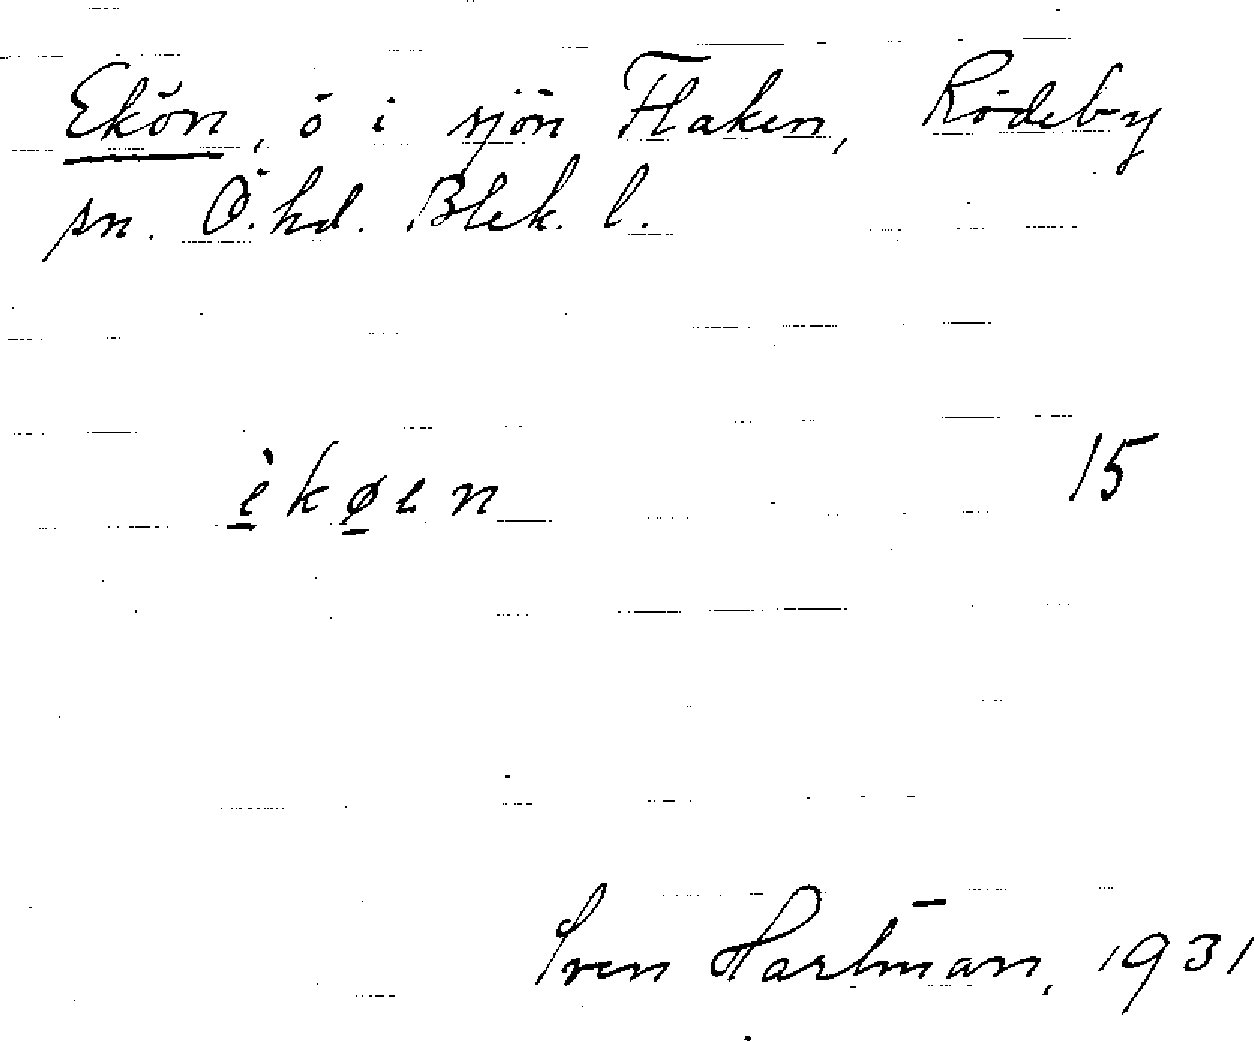 Ekön, ö i sjön Flaken, Rödeby
sn. Ö. hd. Blek. l.
èkøen 15
Sven Hartman, 1931